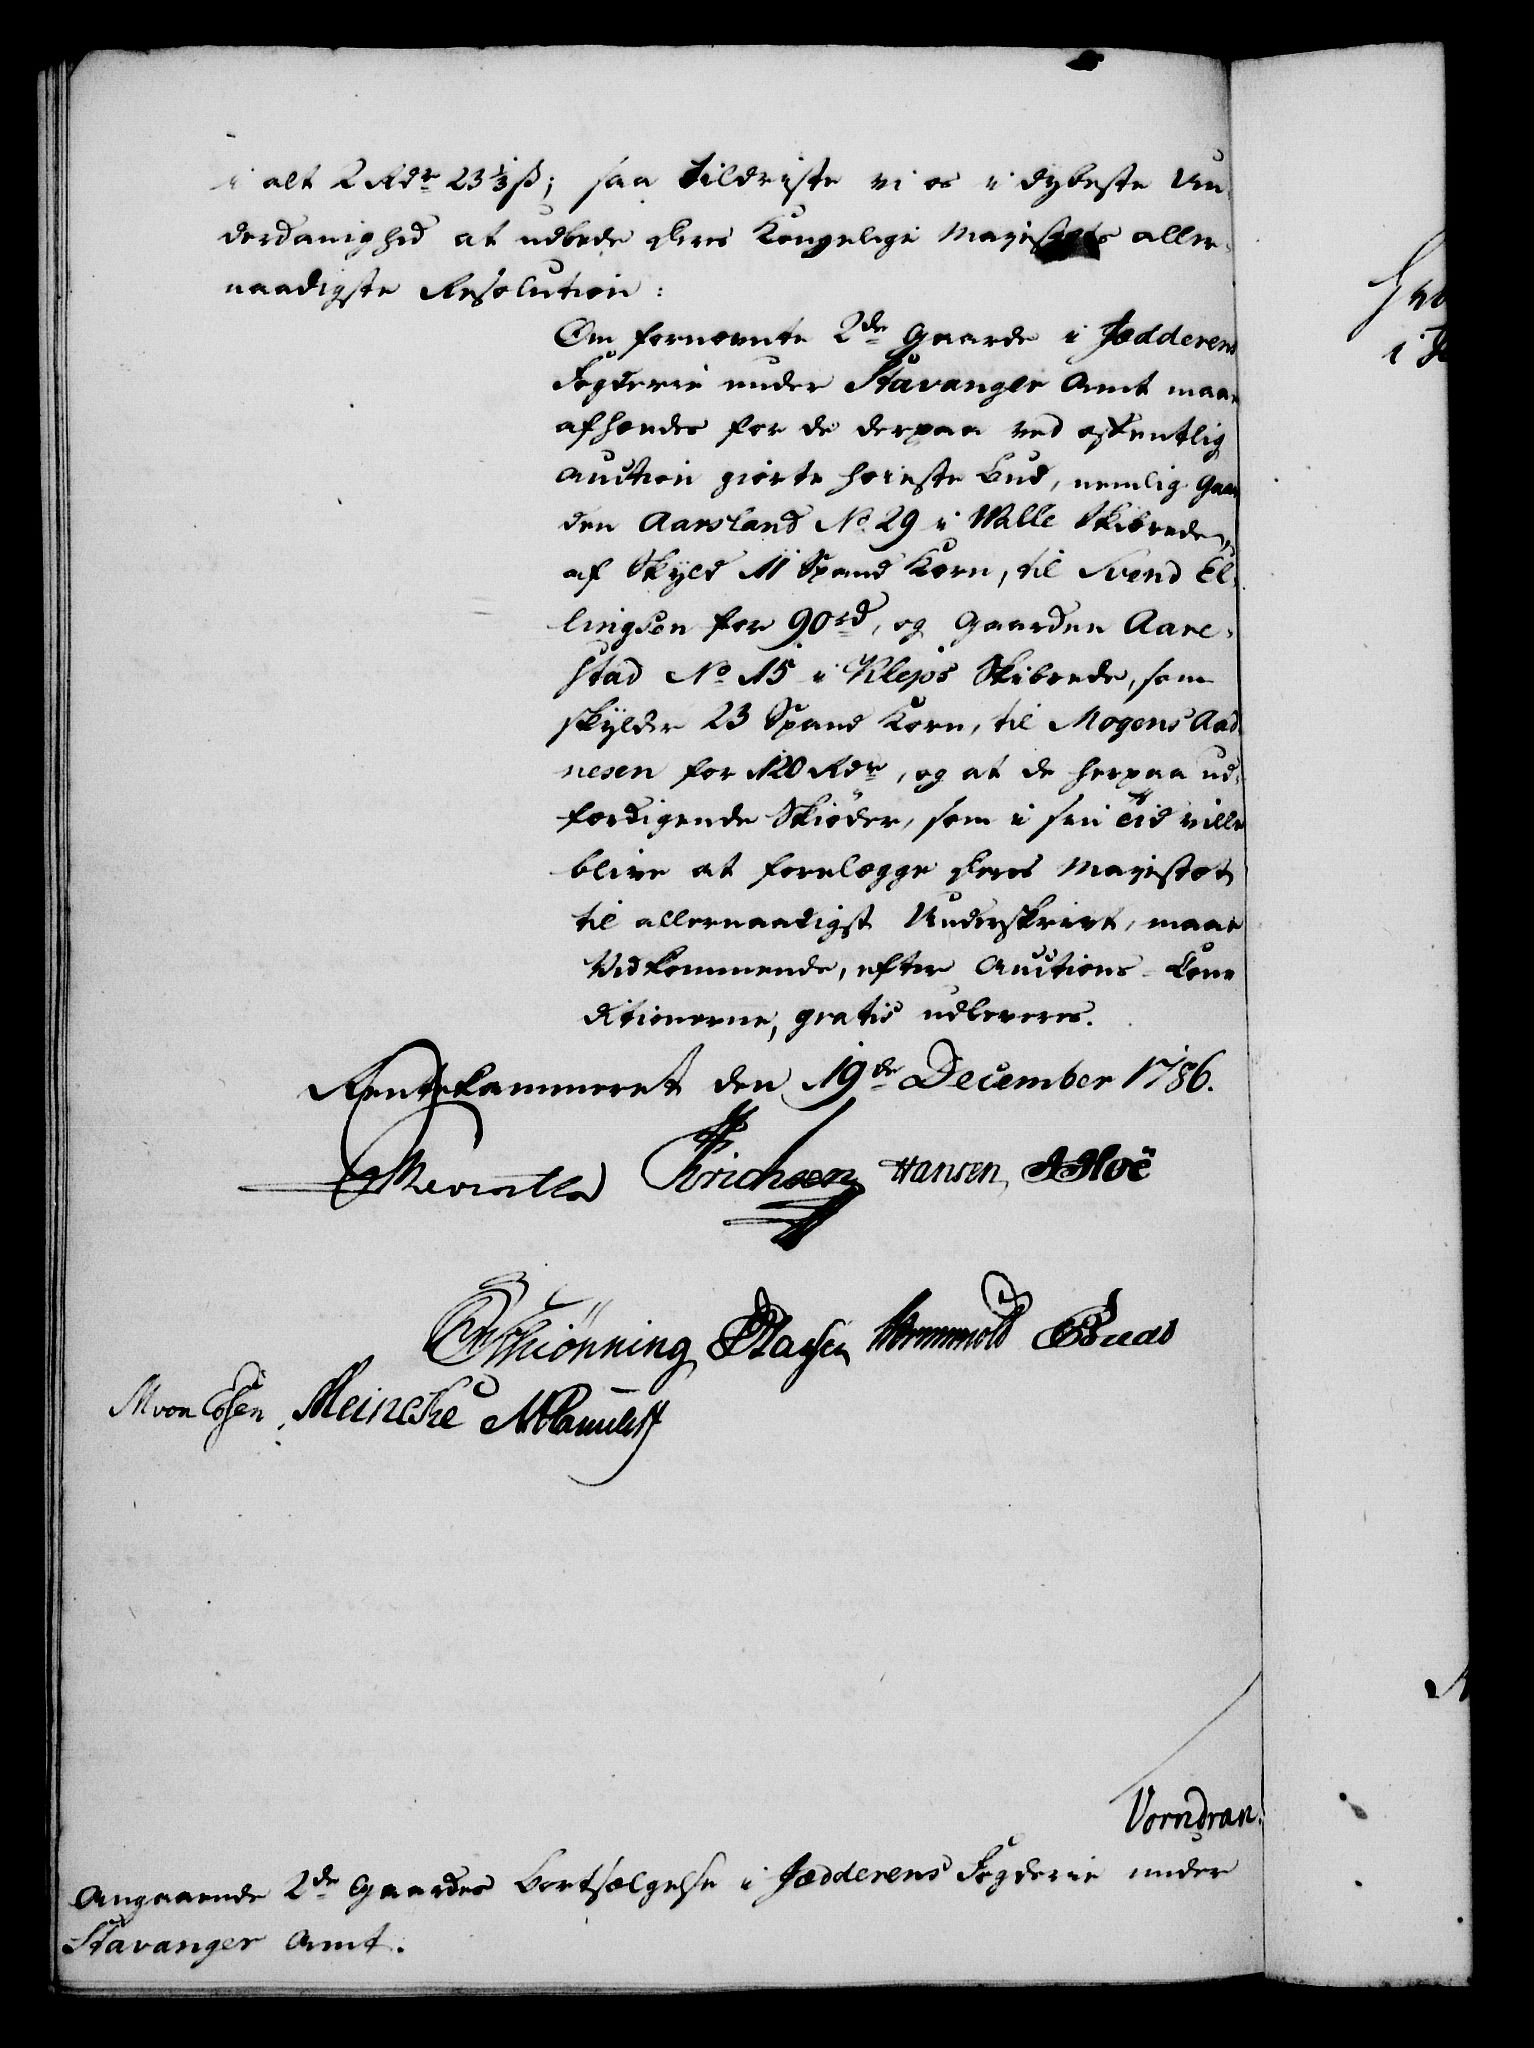 i alt 2 Rdr 23 1/3 ß; saa tildriste vi os i dybeste Un-
derdanighed at udbede Deres Kongelige Majestets aller-
naadigste Resolution:
Om fornevnte 2de Gaarde i Jædderens
Fogderie under Stavanger Amt maae
afhændes for de derpaa ved offentlig
Auction giorte høieste Bud, nemlig Gaar
den Aarsland No. 29 i Walle Skibrede,
af Skyld 11 Spand Korn, til Svend El-
lingsen for 90 rd, og Gaarden Aare-
stad No 15 i Klepos Skibrede, som
skylder 23 Spand Korn, til Mogens Aad
nesen for 120 Rdr, og at de herpaa ud-
færdigende Skiøder, som i sin Tid ville
blive at forelægge Deres Majestet
til allernaadigst Underskrivt, maae
Vedkommende, efter Auctions-Con
ditionerne, gratis udleveres.
Rentekammeret den 19de December 1786.
Reventlow Erichsen Hansen, AHoë
Schiønning Wormskiold
M von Essen, Meincke
Vorndran.
Angaaende 2de Gaardes Bortsælgelse i Jædderens Fogderie under
Stavanger Amt.